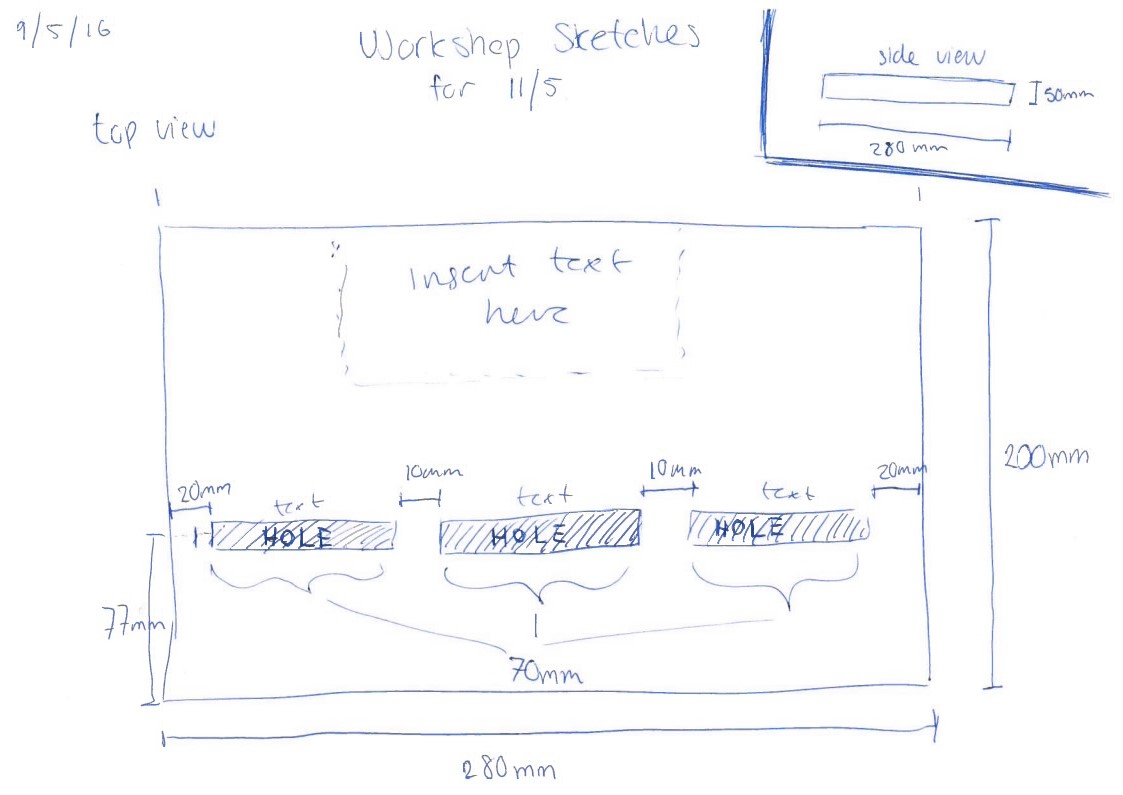 9/5/16
Workshop Sketches
for 11/5
side view
50mm
280mm
top view
Insert text
here
200mm
20mm
10mm
10mm
20mm
text
text
text
HOLE
HOLE
HOLE
77mm
70mm
280mm